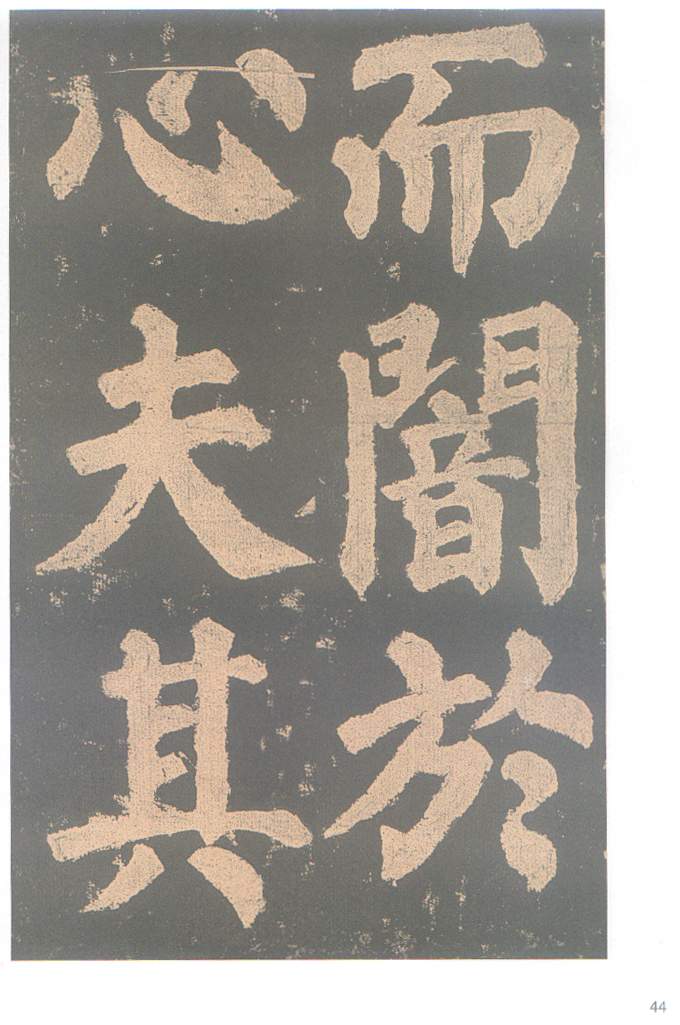 而闇於
心夫其
44